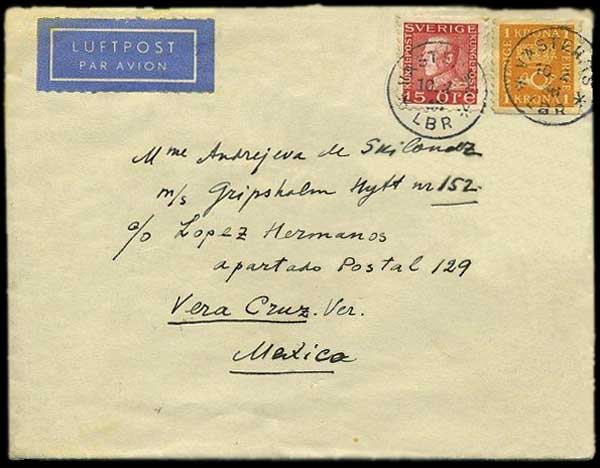 LUFTPOST
PAR AVION
SVERIGE
15 ÖRE
LBR
1 KRONA 1
SVERIGE
1 KRONA 1
VÄSTERÅS
LBR
Mme Andrejewa de Skilondz
m/s Gripsholm Hytt nr 152
c/o Lopez Hermanos
apartado Postal 129
Vera Cruz. Ver.
Mexico